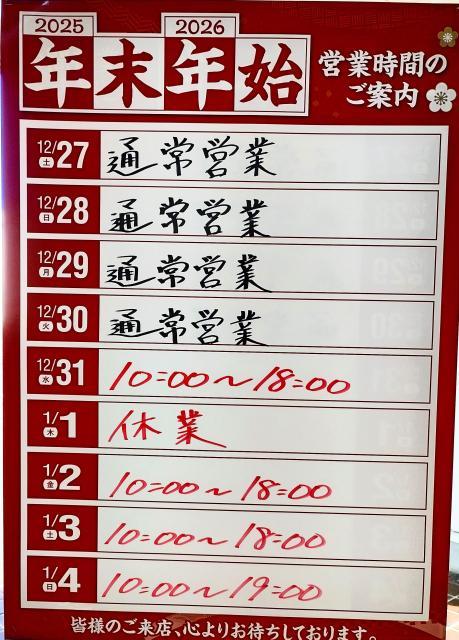 2025 2026
年末年始
営業時間の
ご案内
12/27 土 通常営業
12/28 日 通常営業
12/29 月 通常営業
12/30 火 通常営業
12/31 水 10:00~18:00
1/1 木 休業
1/2 金 10:00~18:00
1/3 土 10:00~18:00
1/4 日 10:00~19:00
皆様のご来店、心よりお待ちしております。